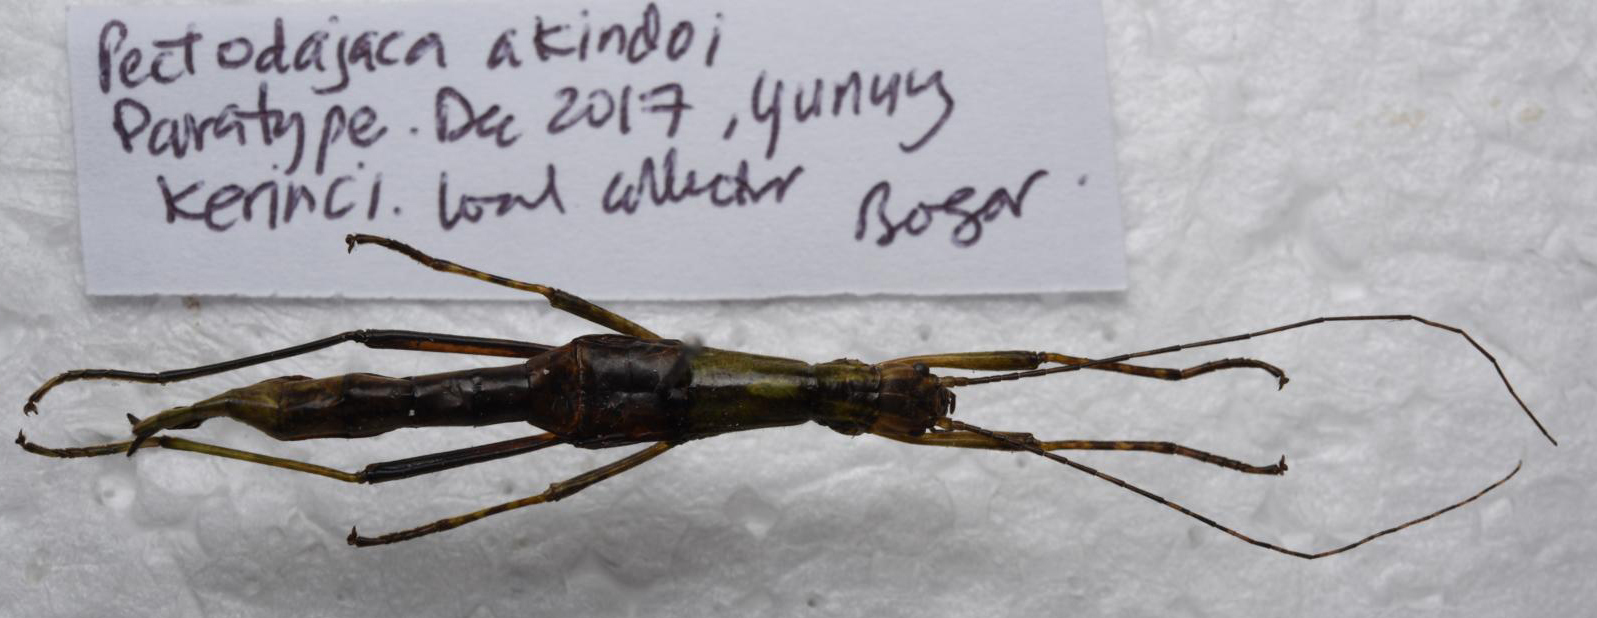 Pectodajaca akindoi
Paratype. Dec 2017, gunung
Kerinci. Local collector Bogor.